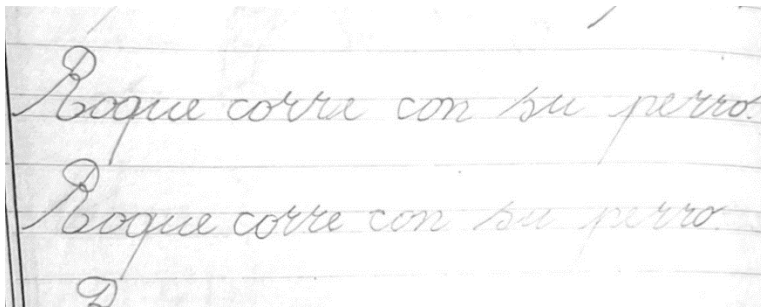 Roque corre con su perro.
Roque corre con su perro.